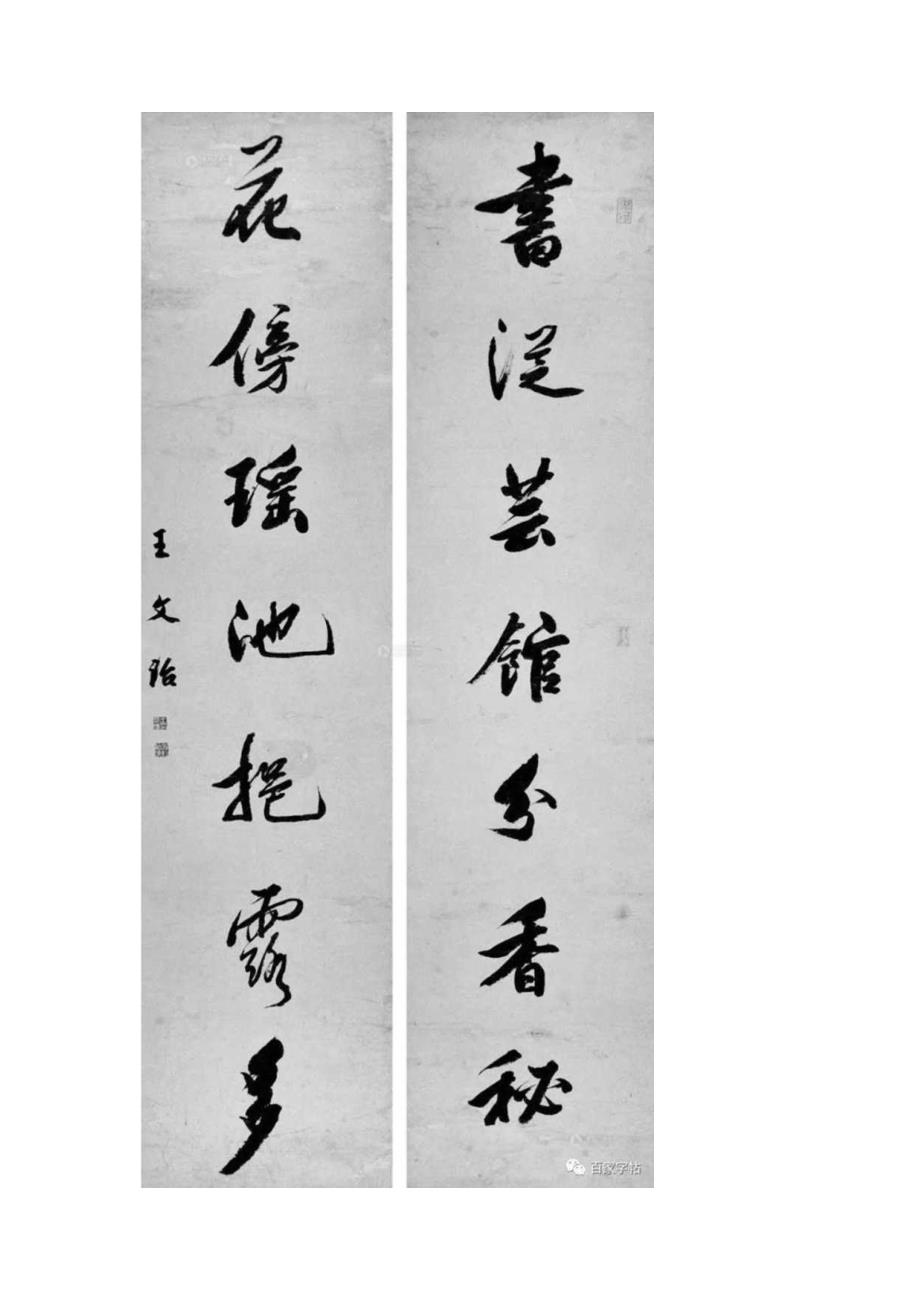 書從芸館分香秘
花傍瑤池挹露多
王文治
百家字帖